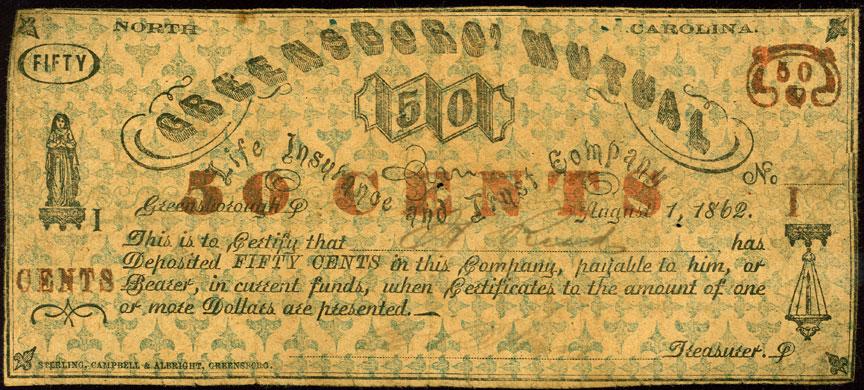 NORTH CAROLINA.
FIFTY
GREENSBORO' MUTUAL
50
50
Life Insurance and Trust Company
No
50 CENTS
Greensborough August 1, 1862.
I I
This is to Certify that has
Deposited FIFTY CENTS in this Company, payable to him, or
CENTS
Bearer, in current funds, when Certificates to the amount of one
or more Dollars are presented.
Treasurer.
STERLING, CAMPBELL & ALBRIGHT, GREENSBORO.